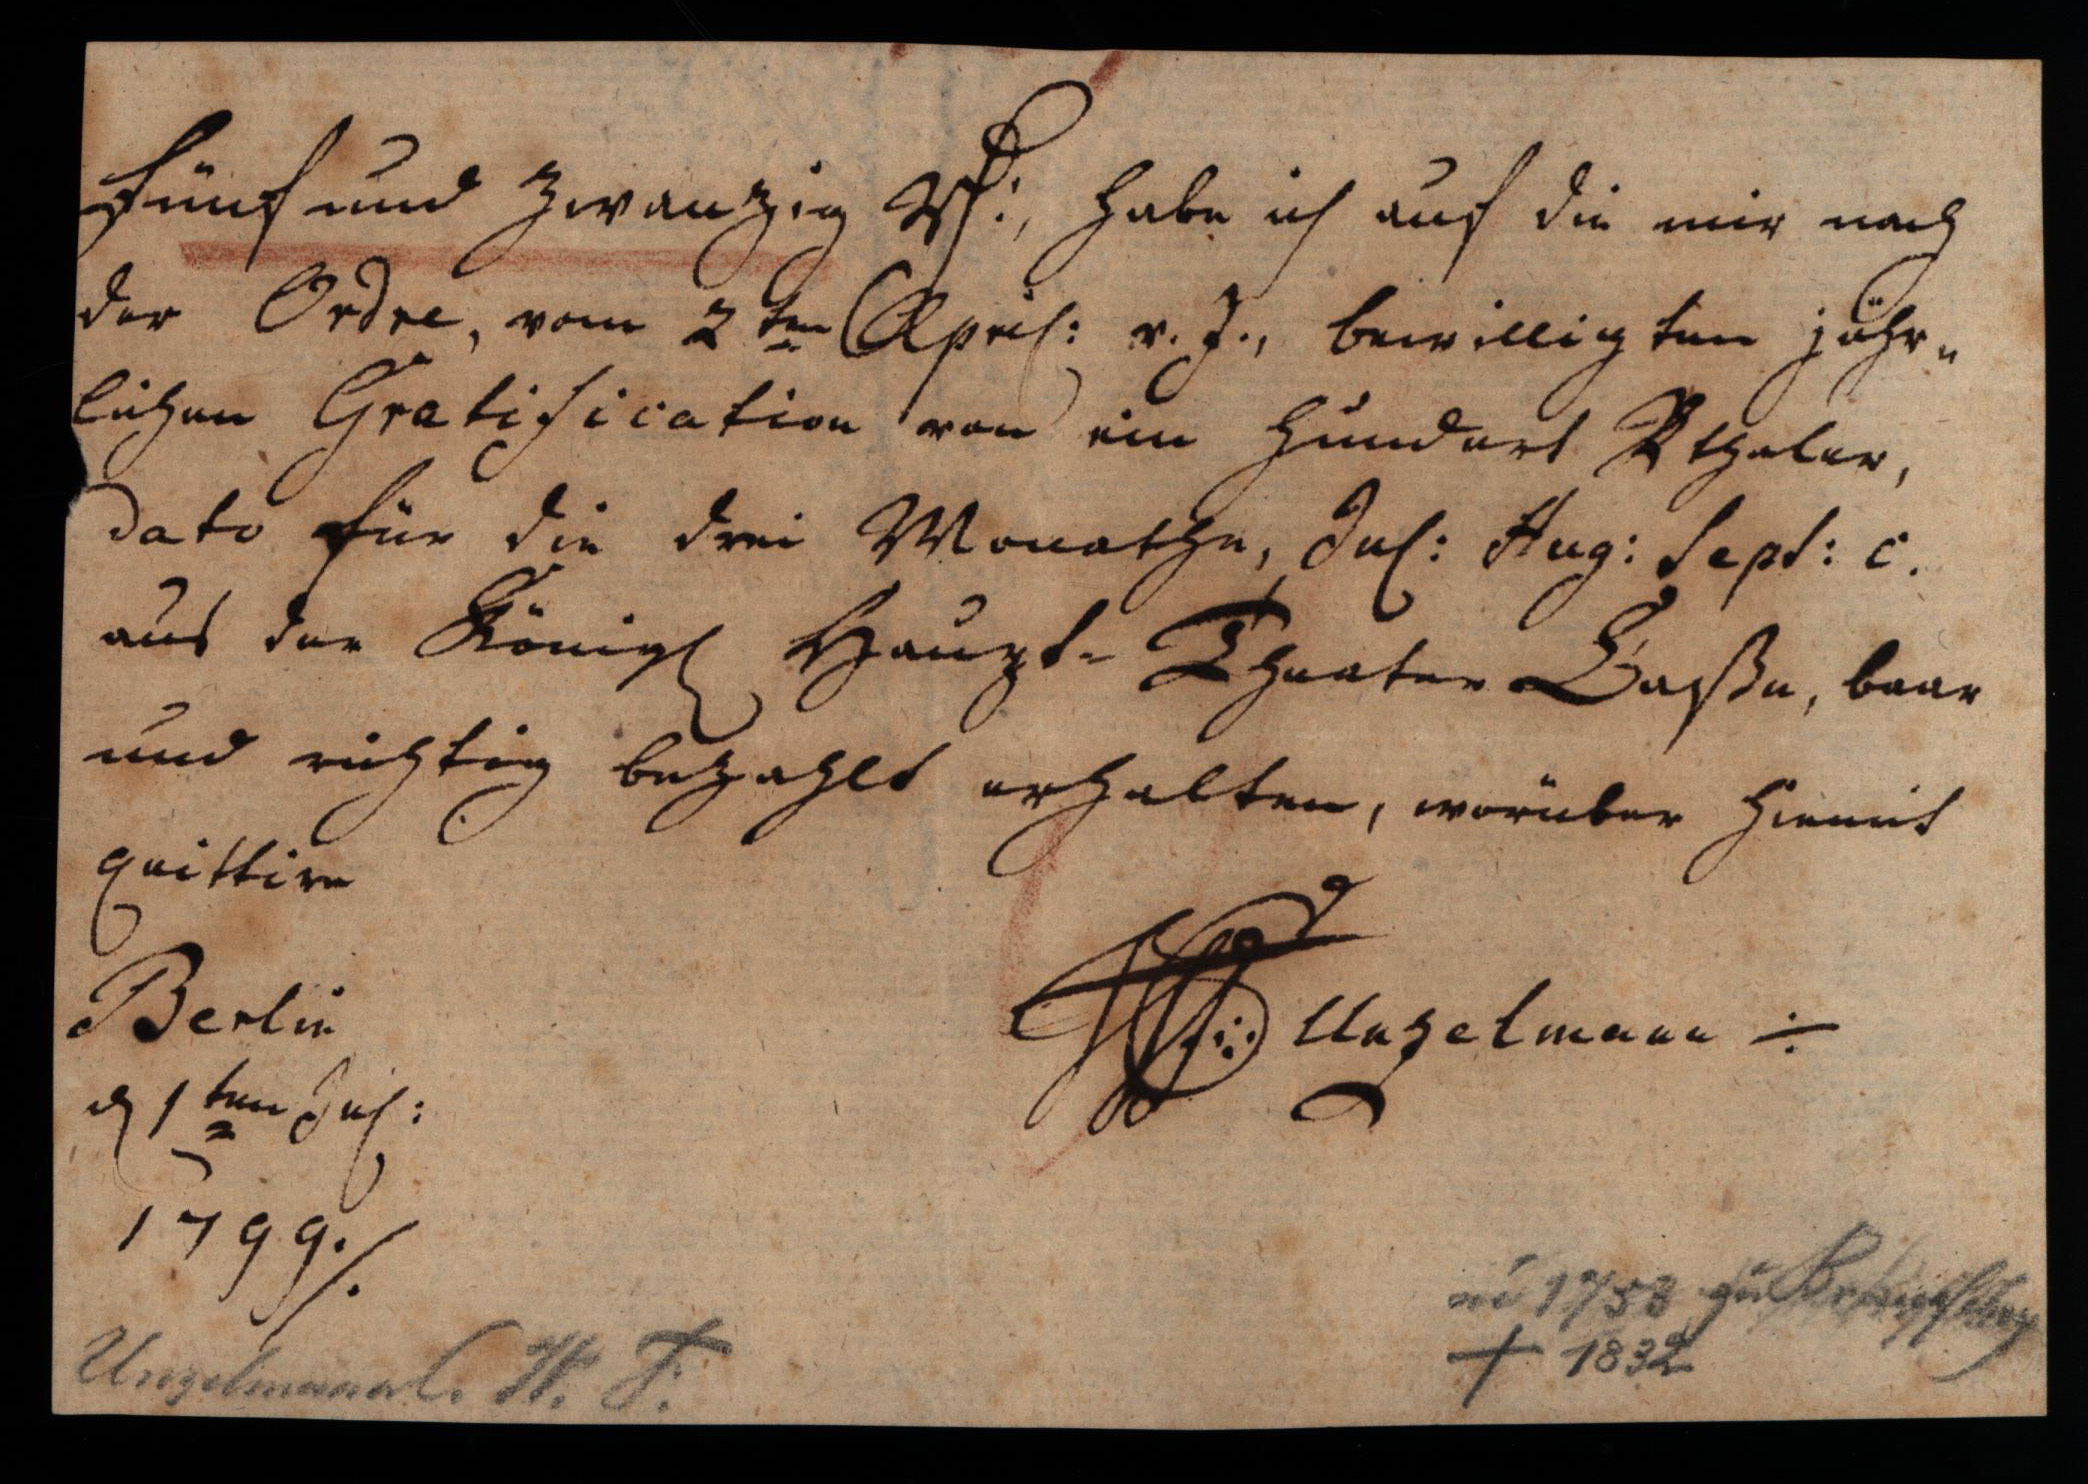 Fünf und zwanzig Rh:, habe ich auf die mir nach
der Ordre, vom 2ten April: v. J., bewilligten jähr=
lichen Gratification von ein Hundert Rthaler,
dato für die drei Monathe, Jul: Aug: Sept: c.
aus der Königl Haupt= Theater Casße, baar
und richtig bezahlt erhalten, worüber hiemit
quittire
Berlin
d 1ten Jul:
1799./.
Unzelmann
Unzelmann
1758 zu Braunschweig
† 1832